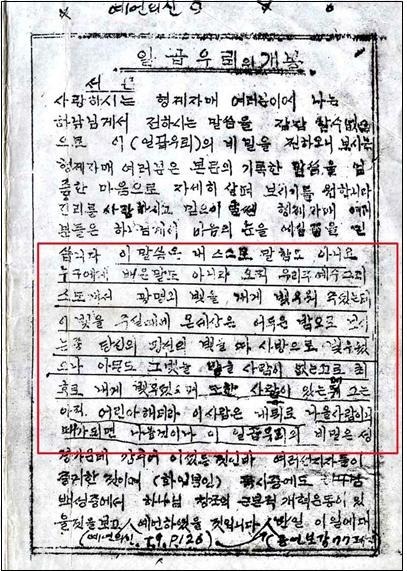 예언의신
일곱우뢰의개봉
서론
사랑하시는 형제자매 여러분에게 나는
하나님께서 전하시는 말씀을 감감 할수없음
으로 이 (일곱우뢰)의 비밀을 전하오니 보시는
형제자매 여러분은 본문의 기록한 말씀을
중한 마음으로 자세히 살펴 보시기를 원합니다
진리를 사랑하시고 믿으며 형제자매 여러
분들은 하나님께서 마음의 눈을
습니다 이 말씀은 내 스스로 말함도 아니요
누구에게 배운말도 아니라 오직 우리주예수그리
스도께서 광명의 빛을 내게 빛취워 주셨는데
이 빛을 주실때에 온세상은 어두운 밤으로
는중 당신의 빛을 사방으로
으나 아무도 그빛을 받을 사람이 없는고로 최
후로 내게 또한 사람이 있는데 그는
아직 어린아해더라 이사람은 내뒤로 나올사람이니
때가되면 나올것이다 이 일곱우뢰의 비밀은 성
경가운데 감추어 있었든것인바 여러선지자들이
증거한 것이며 (화잇부인)
백성중에서 하나님 창조의 근본적 개혁운동이 있
을것을보고 예언하였을 것입니다 만일 이일에대
(예언의신 T.9, P.126) 77